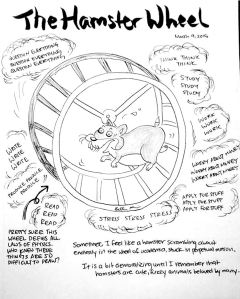 The Hamster Wheel
March 9, 2016
QUESTION EVERYTHING
QUESTION EVERYTHING
QUESTION EVERYTHING
THINK THINK
THINK
STUDY
STUDY
STUDY
WORK
WORK
WORK
WRITE
WRITE
WRITE
WORRY ABOUT MONEY
WORRY ABOUT MONEY
WORRY ABOUT MONEY
PRODUCE PRODUCE
PRODUCE
READ
READ
READ
STRESS STRESS STRESS
APPLY FOR STUFF
APPLY FOR STUFF
APPLY FOR STUFF
PRETTY SURE THIS
WHEEL DEFIES ALL
LAWS OF PHYSICS.
WHO KNEW THESE
THINGS ARE SO
DIFFICULT TO DRAW?
Sometimes, I feel like a hamster scrambling about
endlessly in the wheel of academia, stuck in perpetual motion.
It is a bit demoralizing until I remember that
hamsters are cute, fuzzy animals beloved by many.